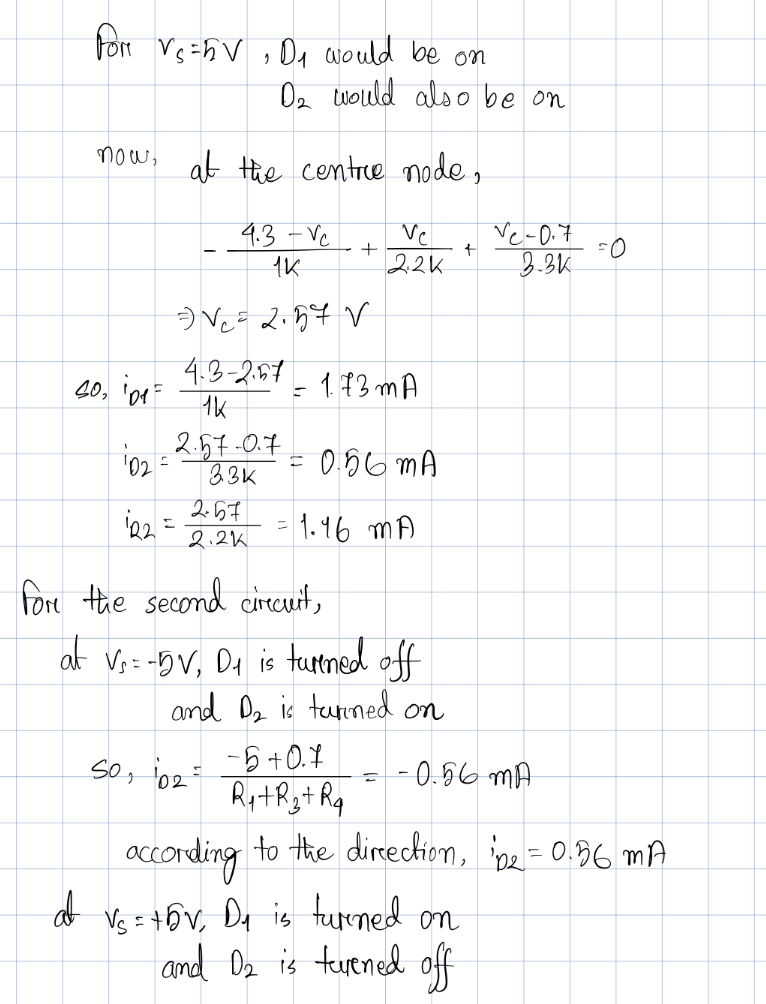 For Vs=5V, D1 would be on
D2 would also be on
now, at the centre node,
- (4.3 - Vc)/1K + Vc/2.2K + (Vc-0.7)/3.3K = 0
⇒ Vc = 2.57 V
so, iD1 = (4.3-2.57)/1K = 1.73 mA
iD2 = (2.57-0.7)/3.3K = 0.56 mA
iR2 = 2.57/2.2K = 1.16 mA
For the second circuit,
at Vs = -5V, D1 is turned off
and D2 is turned on
So, iD2 = (-5+0.7)/(R1+R3+R4) = -0.56 mA
according to the direction, iD2 = 0.56 mA
at Vs = +5V, D1 is turned on
and D2 is turned off